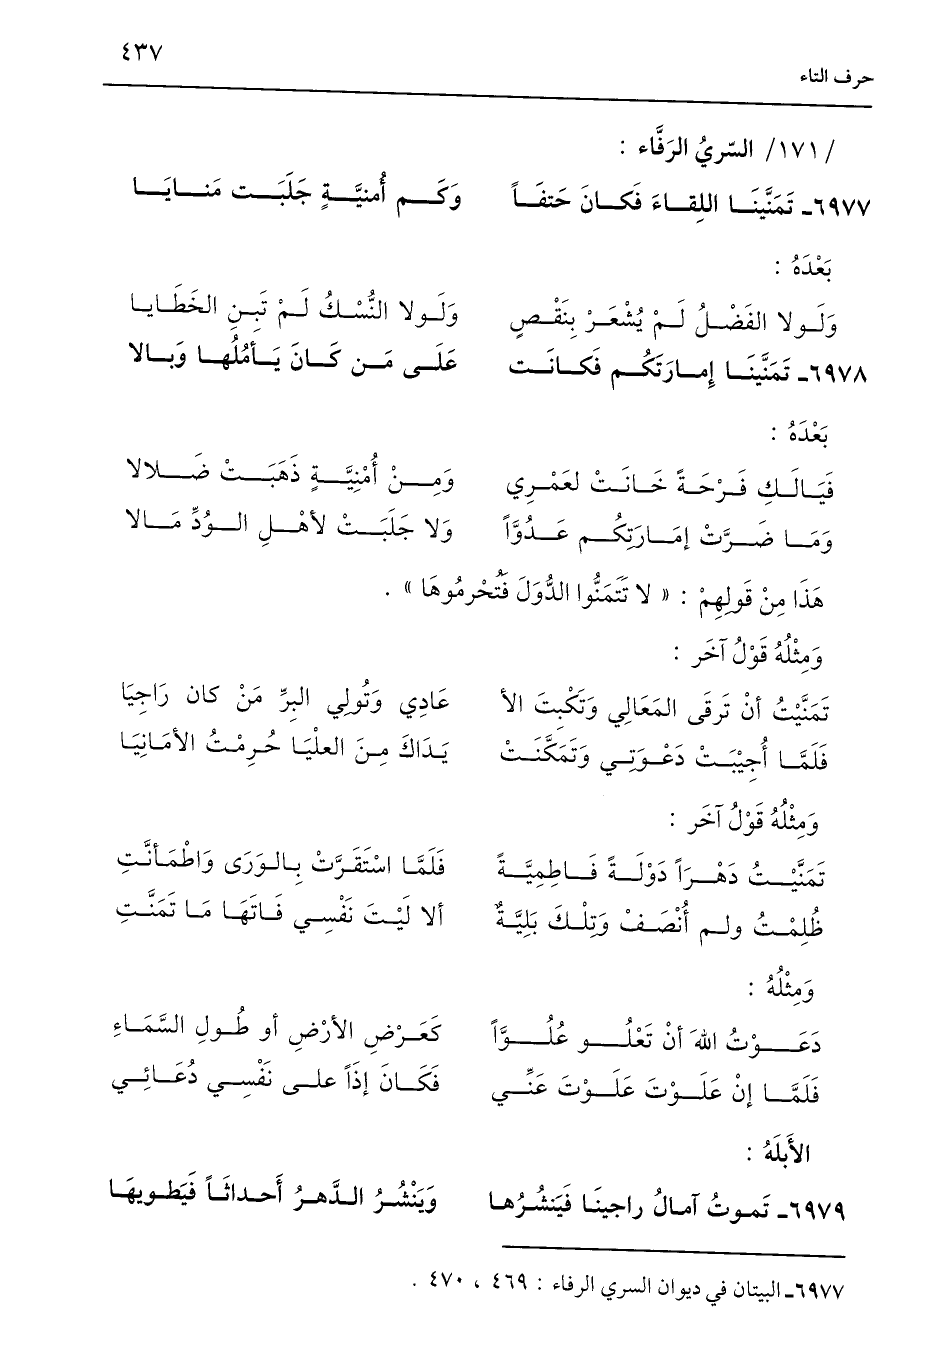 ٤٣٧
حرف التاء
/ ١٧١/ السّريُ الرَفَّاء :
٦٩٧٧ـ تَمَنَّينَا اللِقاءَ فَكانَ حَتفَاً وَكَم أُمنيَّةٍ جَلَبَت مَنايَا
بَعْدَهُ :
وَلَولا الفَضْلُ لَمْ يُشْعَرْ بِنَقْصٍ وَلَولا النُّسْكُ لَمْ تَبِنِ الخَطَايا
٦٩٧٨ـ تَمَنَّينَا إِمارَتَكُم فَكانَت عَلَى مَن كَانَ يَأمُلُها وَبالا
بَعْدَهُ :
فَيَالَكِ فَرْحَةً خَانَتْ لعَمْرِي وَمِنْ أُمْنِيَّةٍ ذَهَبَتْ ضَلالا
وَمَا ضَرَّتْ إمَارَتِكُم عَدُوَّاً وَلا جَلَبَتْ لأَهْلِ الوُدِّ مَالا
هَذَا مِنْ قَولِهِمْ : « لا تَتَمَنُّوا الدُّوَلَ فَتُحْرمُوهَا » .
وَمِثْلُهُ قَوْلُ آخَر :
تَمَنَّيْتُ أنْ تَرقَى المَعَالِي وَتَكْبِتَ الأ عَادِي وَتُولِي البِرِّ مَنْ كان رَاجِيَا
فَلَمَّا أُجِيْبَتْ دَعْوَتِي وَتَمَكَّنَتْ يَدَاكَ مِنَ العلْيَا حُرِمْتُ الأمَانِيَا
وَمِثْلُهُ قَوْلُ آخَر :
تَمَنَّيْتُ دَهْرَاً دَوْلَةً فَاطِمِيَّةً فَلَمَّا اسْتَقَرَّتْ بِالوَرَى وَاطْمَأنَّتِ
ظُلِمْتُ ولم أُنْصَفْ وَتِلْكَ بَلِيَّةٌ ألا لَيْتَ نَفْسِي فَاتَهَا مَا تَمَنَّتِ
وَمِثْلُهُ :
دَعَوْتُ اللهَ أنْ تَعْلُو عُلُوَّاً كَعَرْضِ الأرْضِ أو طُولِ السَّمَاءِ
فَلَمَّا إنْ عَلَوْتَ عَلَوْتَ عَنِّي فَكَانَ إذَاً على نَفْسِي دُعَائِي
الأَبلَهُ :
٦٩٧٩ـ تَموتُ آمالُ راجينَا فَيَنشُرُها وَيَنْشُرُ الدَّهرُ أَحداثَاً فَيَطويهَا
٦٩٧٧ـ البيتان في ديوان السري الرفاء : ٤٦٩ ، ٤٧٠ .